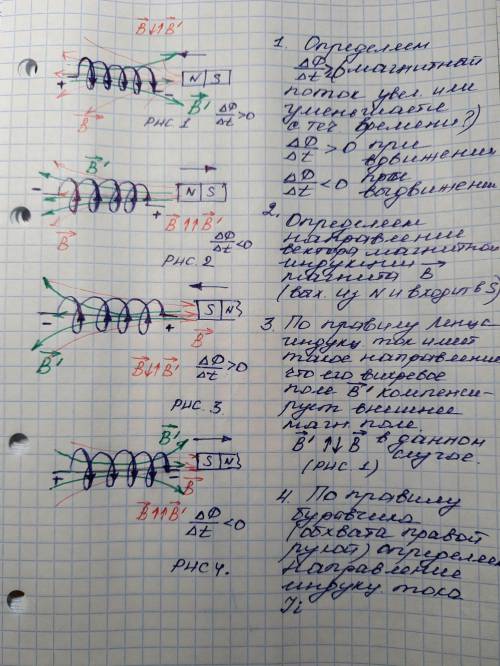 B⃗↓↑B⃗'
N S
+ −
B⃗'
B⃗
РИС 1 ΔФ/Δt >0
B⃗'
− N S
+
B⃗ B⃗↑↑B⃗'
ΔФ/Δt <0
РИС. 2
S N
− +
B⃗' B⃗
B⃗↓↑B⃗' ΔФ/Δt >0
РИС. 3.
B⃗'
S N
+ −
B⃗
B⃗↑↑B⃗' ΔФ/Δt <0
РИС 4.
1. Определяем
ΔФ/Δt >0 (магнитный
поток увел. или
уменьшается
с теч времени?)
ΔФ/Δt >0 при
вдвижении
ΔФ/Δt <0 при
выдвижении
2. Определяем
направление
вектора магнитной
индукции
магнита B⃗
(вых. из N и входит в S)
3. По правилу Ленца
индукц. ток имеет
такое направление
что его вихревое
поле B⃗' компенси-
рует внешнее
магн. поле.
B⃗'↑↓B⃗ в данном
случае.
(рис. 1)
4. По правилу
буравчика
(обхвата правой
рукой) определяем
направление
индукц. тока
Ji